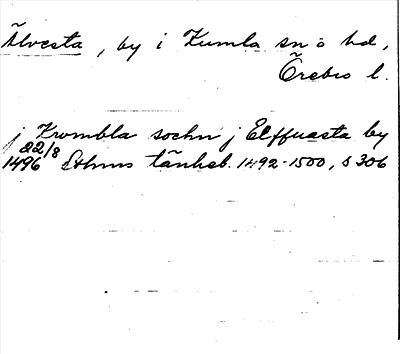 Älvesta, by i Kumla sn o hd,
Örebro l.
j Krombla sochn j Elffuasta by
22/8
1496 Sthms tänkeb. 1492-1500, s 306